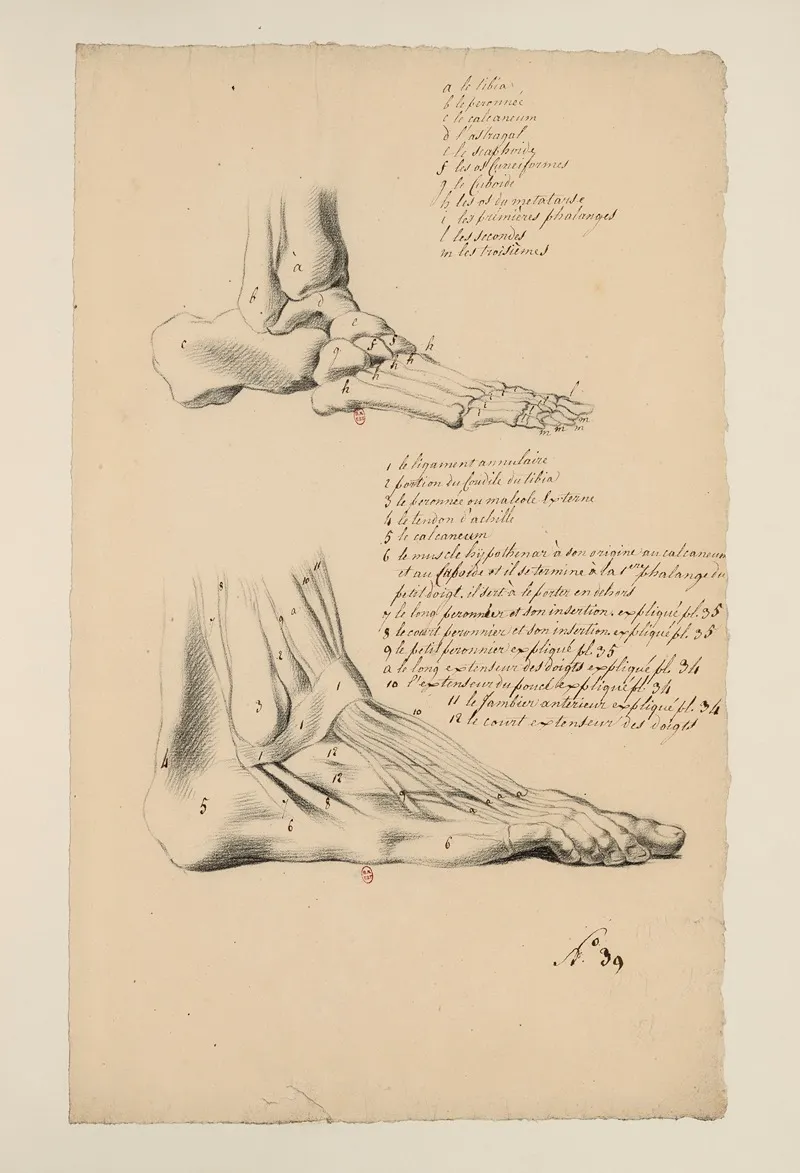 a le tibia
b le peronnée
c le calcaneum
d l'astragal
e le scaphoide
f les os Cuneiformes
g le Cuboide
h les os du metatarse
i les premières phalanges
l les secondes
m les troisièmes
à
b
d
c
e
g
f
f
h
h
h
h
h
h
i
i
i
i
l
l
m
m
m
1 le ligament annulaire
2 portion du Condile du tibia
3 le peronnée ou maleole Externe
4 le tendon d'achille
5 le calcaneum
6 le muscle hypothenar à son origine au calcaneum
et au Cuboide et il se termine à la 1ere phalange du
petit doigt. il sert à le porter en dehors
7 le long peronnier et son insertion. expliqué pl. 35
8 le court peronnier et son insertion expliqué pl. 35
9 le petit peronnier expliqué pl. 35
a le long extenseur des doigts expliqué pl. 34
10 l'extenseur du pouce expliqué pl. 34
11 le Jambier anterieur expliqué pl. 34
12 le court extenseur des doigts
11
10
8
7
9
a
2
3
1
1
1
10
4
12
12
5
7
8
9
6
a
a
a
a
6
N.o 39